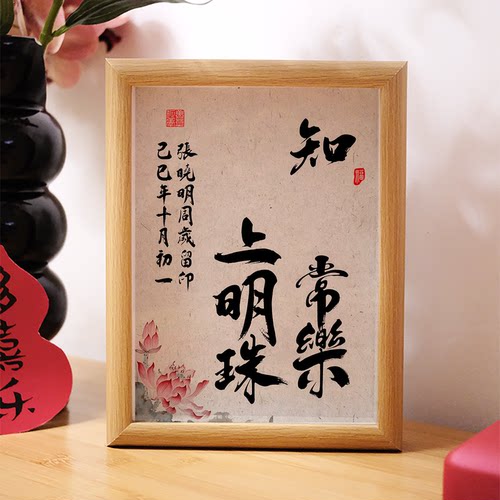 知常樂
上明珠
張晚明周歲留印
己巳年十月初一
多喜乐